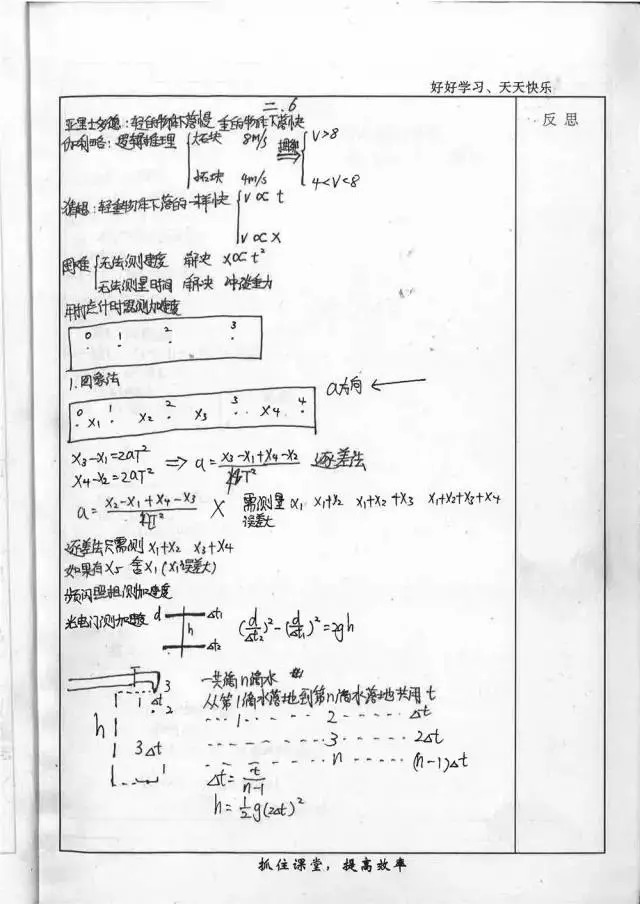 好好学习、天天快乐
反思
二.6
亚里士多德:轻的物体下落慢 重的物体下落快
伽利略:逻辑推理 大石块 8m/s V>8
小石块 4m/s 4<V<8
猜想:轻重物体下落的一样快 V∝t
V∝X
困难 无法测速度 解决 X∝t²
无法测量时间 解决 冲淡重力
用打点计时器测加速度
0 1 2 3
1.图象法
0 X₁ 1 X₂ 2 X₃ 3 X₄ 4 a方向 ←
X₃-X₁=2aT²
X₄-X₂=2aT² ⇒ a=(X₃-X₁+X₄-X₂)/4T² 逐差法
a=(X₂-X₁+X₄-X₃)/2T² X 需测量 X₁ X₁+X₂ X₁+X₂+X₃ X₁+X₂+X₃+X₄
误差大
逐差法只需测 X₁+X₂ X₃+X₄
如果有X₅ 舍X₁(X₁误差大)
频闪照相测加速度
光电门测加速度 d Δt₁ h Δt₂ (d/Δt₂)²-(d/Δt₁)²=2gh
一共滴n滴水
从第1滴水落地到第n滴水落地共用t
3
1 Δt 2
h
3Δt
1
1 2 Δt
3 2Δt
n (n-1)Δt
Δt=t/(n-1)
h=½g(2Δt)²
抓住课堂,提高效率